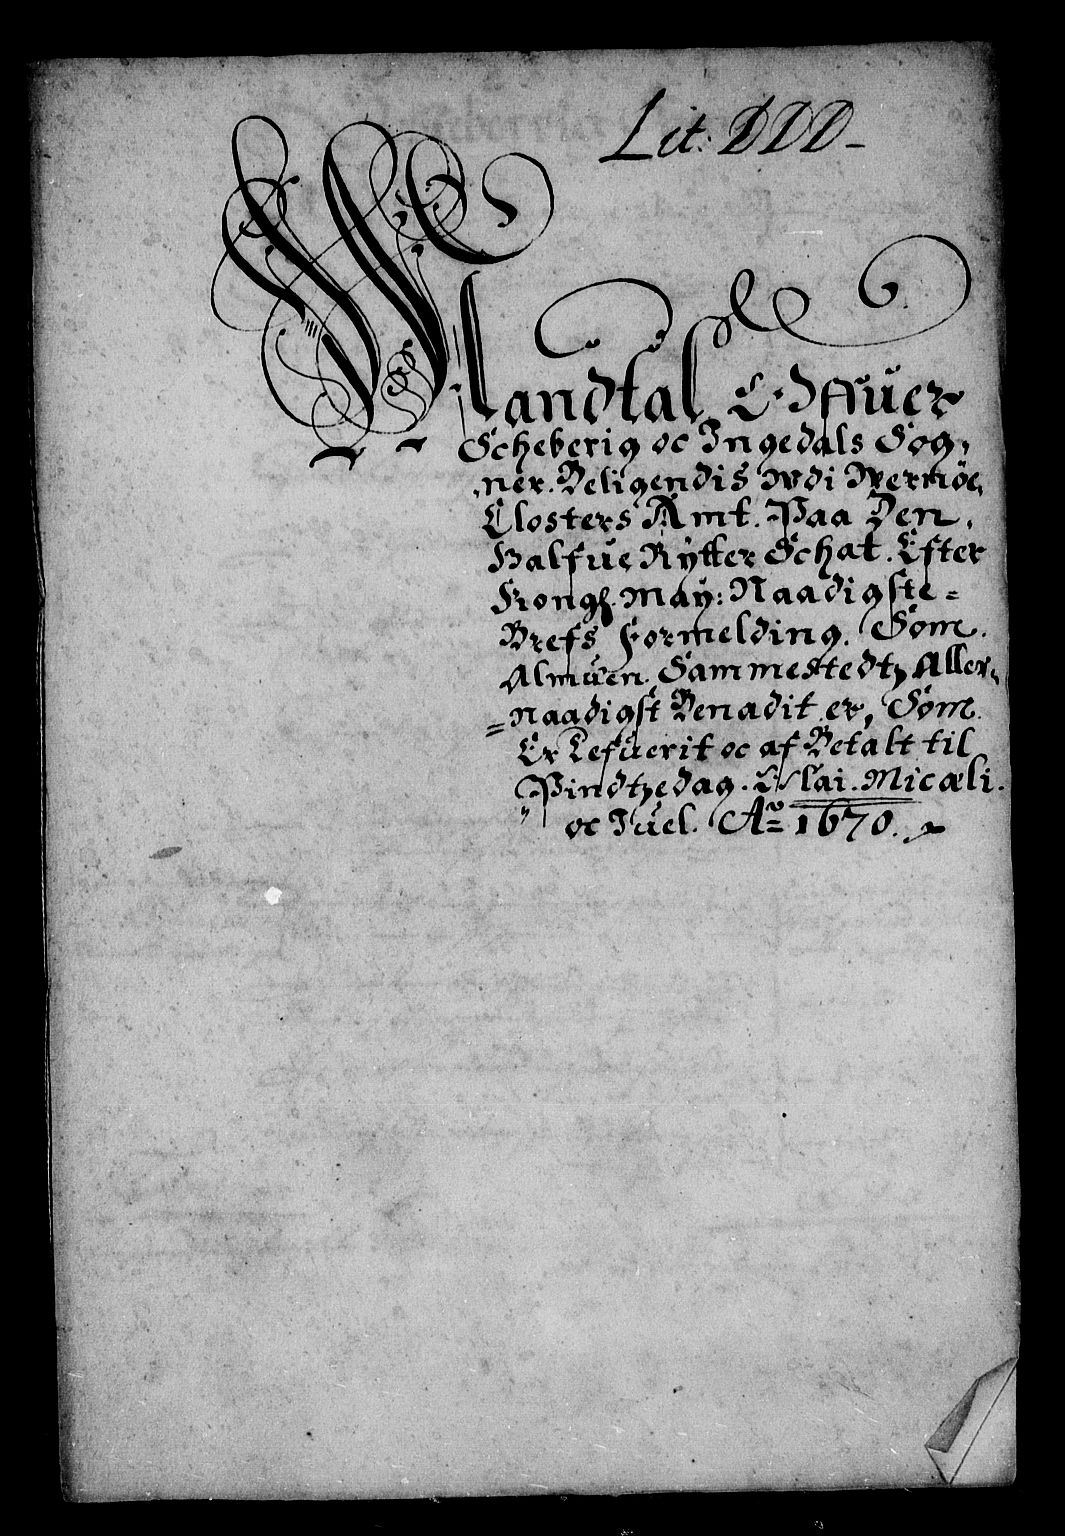 Lit: DDD-
Mandtal Offuer
Scheberig oc Ingedals Sog,
ner. Beligendis wdi Wermøe
Closters Amt. Paa Den
Halfue Rytter Schat. Efter
Kongl. May: Naadigste =
Brefs Formelding. Som.
Almuen. Sammestedtz Aller,
= naadigst Benadit er, Som
Er Lefuerit oc af Betalt til
Pindtzedag. Olai. Micæli.
oc Juel. Ao 1670.